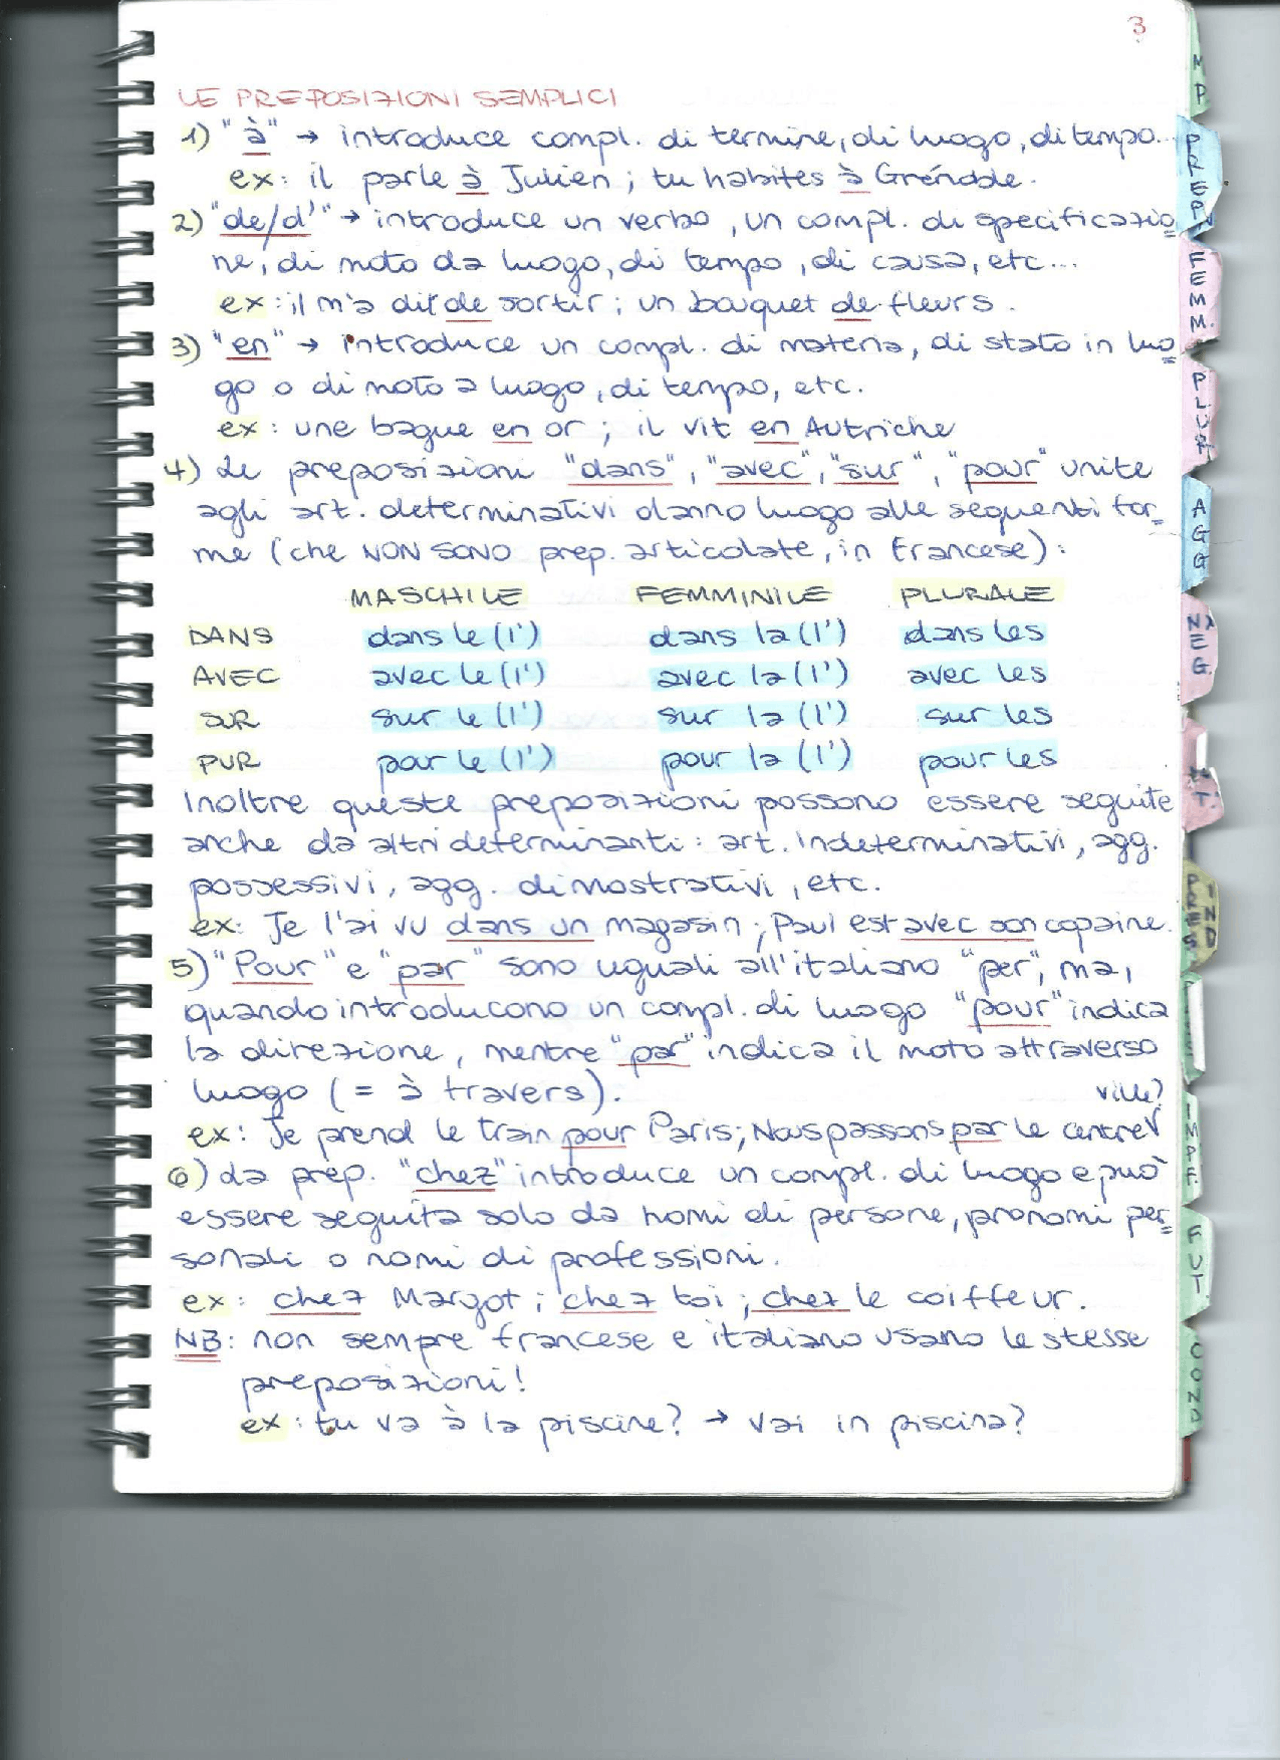 3
LE PREPOSIZIONI SEMPLICI
1) "à" → introduce compl. di termine, di luogo, di tempo...
ex: il parle à Julien; tu habites à Grénoble.
2) "de/d'" → introduce un verbo, un compl. di specificazio-
ne, di moto da luogo, di tempo, di causa, etc...
ex: il m'a dit de sortir; un bouquet de fleurs.
3) "en" → introduce un compl. di materia, di stato in luo-
go o di moto a luogo, di tempo, etc.
ex: une bague en or; il vit en Autriche
4) Le preposizioni "dans", "avec", "sur", "pour" unite
agli art. determinativi danno luogo alle seguenti for-
me (che NON SONO prep. articolate, in Francese):
MASCHILE FEMMINILE PLURALE
DANS dans le (l') dans la (l') dans les
AVEC avec le (l') avec la (l') avec les
SUR sur le (l') sur la (l') sur les
PUR pour le (l') pour la (l') pour les
Inoltre queste preposizioni possono essere seguite
anche da altri determinanti: art. indeterminativi, agg.
possessivi, agg. dimostrativi, etc.
ex: Je l'ai vu dans un magasin; Paul est avec son copaine.
5) "Pour" e "par" sono uguali all'italiano "per", ma,
quando introducono un compl. di luogo "pour" indica
la direzione, mentre "par" indica il moto attraverso
luogo (= à travers).
ex: Je prend le train pour Paris; Nous passons par le centre V ville?
6) La prep. "chez" introduce un compl. di luogo e può
essere seguita solo da nomi di persone, pronomi per-
sonali o nomi di professioni.
ex: chez Margot; chez toi; chez le coiffeur.
NB: non sempre francese e italiano usano le stesse
preposizioni!
ex: tu va à la piscine? → vai in piscina?
PREP.
FEMM.
PLUR.
AGG
NEG.
PRES IND
IMPF.
FUT.
COND